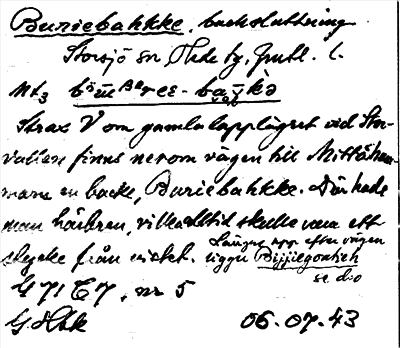 Buriebahkke, backsluttning
Storsjö sn Jhrde tg, Jmtl. l.
Nt3
Strax V om gamla lapplägret vid Stor-
vallen finns nerom vägen till Mittåham-
marn en backe, Buriebahkke. Där hade
man härbren, vilka alltid skulle vara ett
stycke från vistet. Längre upp efter vägen
ligger Bijjiegoatieh
se d:o
G 71 C 7, nr 5
G Hbk 06.07.43